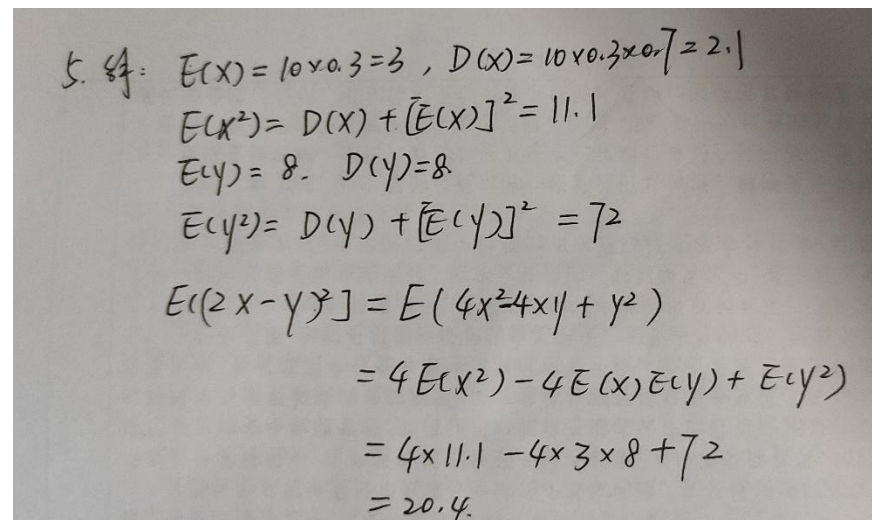 5. 解: E(X)=10×0.3=3, D(X)=10×0.3×0.7=2.1
E(X²)=D(X)+[E(X)]²=11.1
E(y)=8. D(y)=8.
E(y²)=D(y)+[E(y)]²=72
E[(2X-y)²]=E(4x²-4xy+y²)
=4E(X²)-4E(X)E(y)+E(y²)
=4×11.1-4×3×8+72
=20.4.